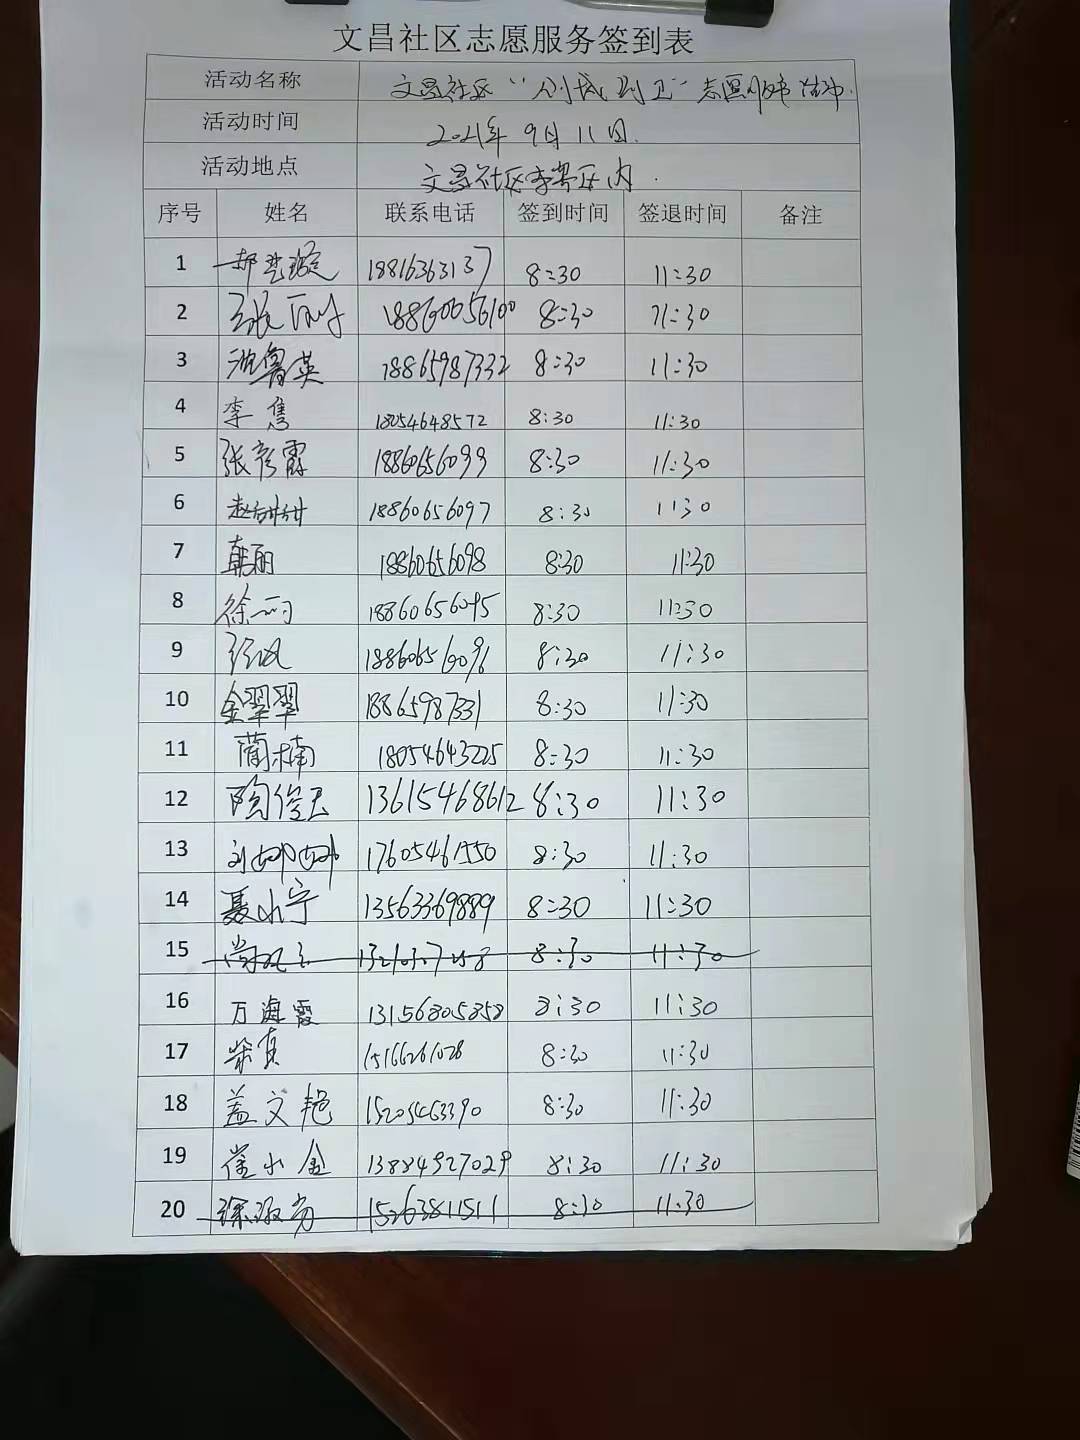 文昌社区志愿服务签到表
活动名称 文昌社区“创城创卫”志愿服务活动.
活动时间 2021年9月11日.
活动地点 文昌社区辖区内.
序号 姓名 联系电话 签到时间 签退时间 备注
1 郝 18816363137 8:30 11:30
2 张 18860656100 8:30 11:30
3 池鲁英 18865987332 8:30 11:30
4 李隽 18054648572 8:30 11:30
5 张彦霞 18860656099 8:30 11:30
6 赵甜甜 18860656097 8:30 11:30
7 韩丽 18860656098 8:30 11:30
8 徐丽 18860656095 8:30 11:30
9 18860656096 8:30 11:30
10 金翠翠 18865987331 8:30 11:30
11 蔺楠 18054643225 8:30 11:30
12 陶俊 13615468612 8:30 11:30
13 刘娜娜 17605461550 8:30 11:30
14 聂小宁 13563369889 8:30 11:30
15 8:30 11:30
16 万海霞 13156805858 8:30 11:30
17 柴真 15166261028 8:30 11:30
18 盖文艳 15205463390 8:30 11:30
19 崔小金 13884927029 8:30 11:30
20 15263811511 8:30 11:30